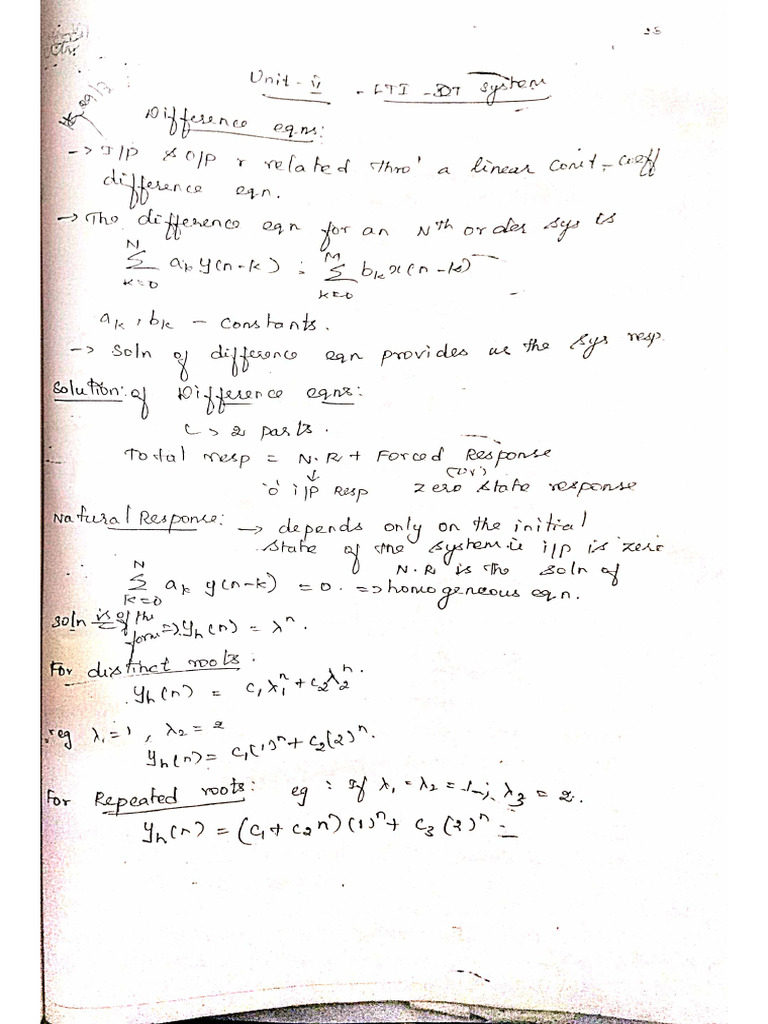 25
Unit - V - LTI - DT System
Difference eqns:
→ I/P & O/P r related thro' a linear const-coeff
difference eqn.
→ The difference eqn for an Nth order sys is
N Σ k=0 ak y(n-k) = M Σ k=0 bk x(n-k)
ak, bk - constants.
→ Soln of difference eqn provides us the sys resp.
Solution: of Difference eqns:
↳ 2 parts.
Total resp = N.R + Forced Response
↓ (or)
'0' i/p Resp zero state response
Natural Response: → depends only on the initial
state of the system ie i/p is zero
N.R is the soln of
N Σ k=0 ak y(n-k) = 0. => homogeneous eqn.
Soln is of the
form => yh(n) = λ^n.
For distinct roots:
yh(n) = c1 λ1^n + c2 λ2^n
eg λ1=1, λ2=2
yh(n) = c1(1)^n + c2(2)^n.
For Repeated roots: eg: If λ1=λ2=1, λ3=2.
yh(n) = (c1 + c2 n)(1)^n + c3(2)^n